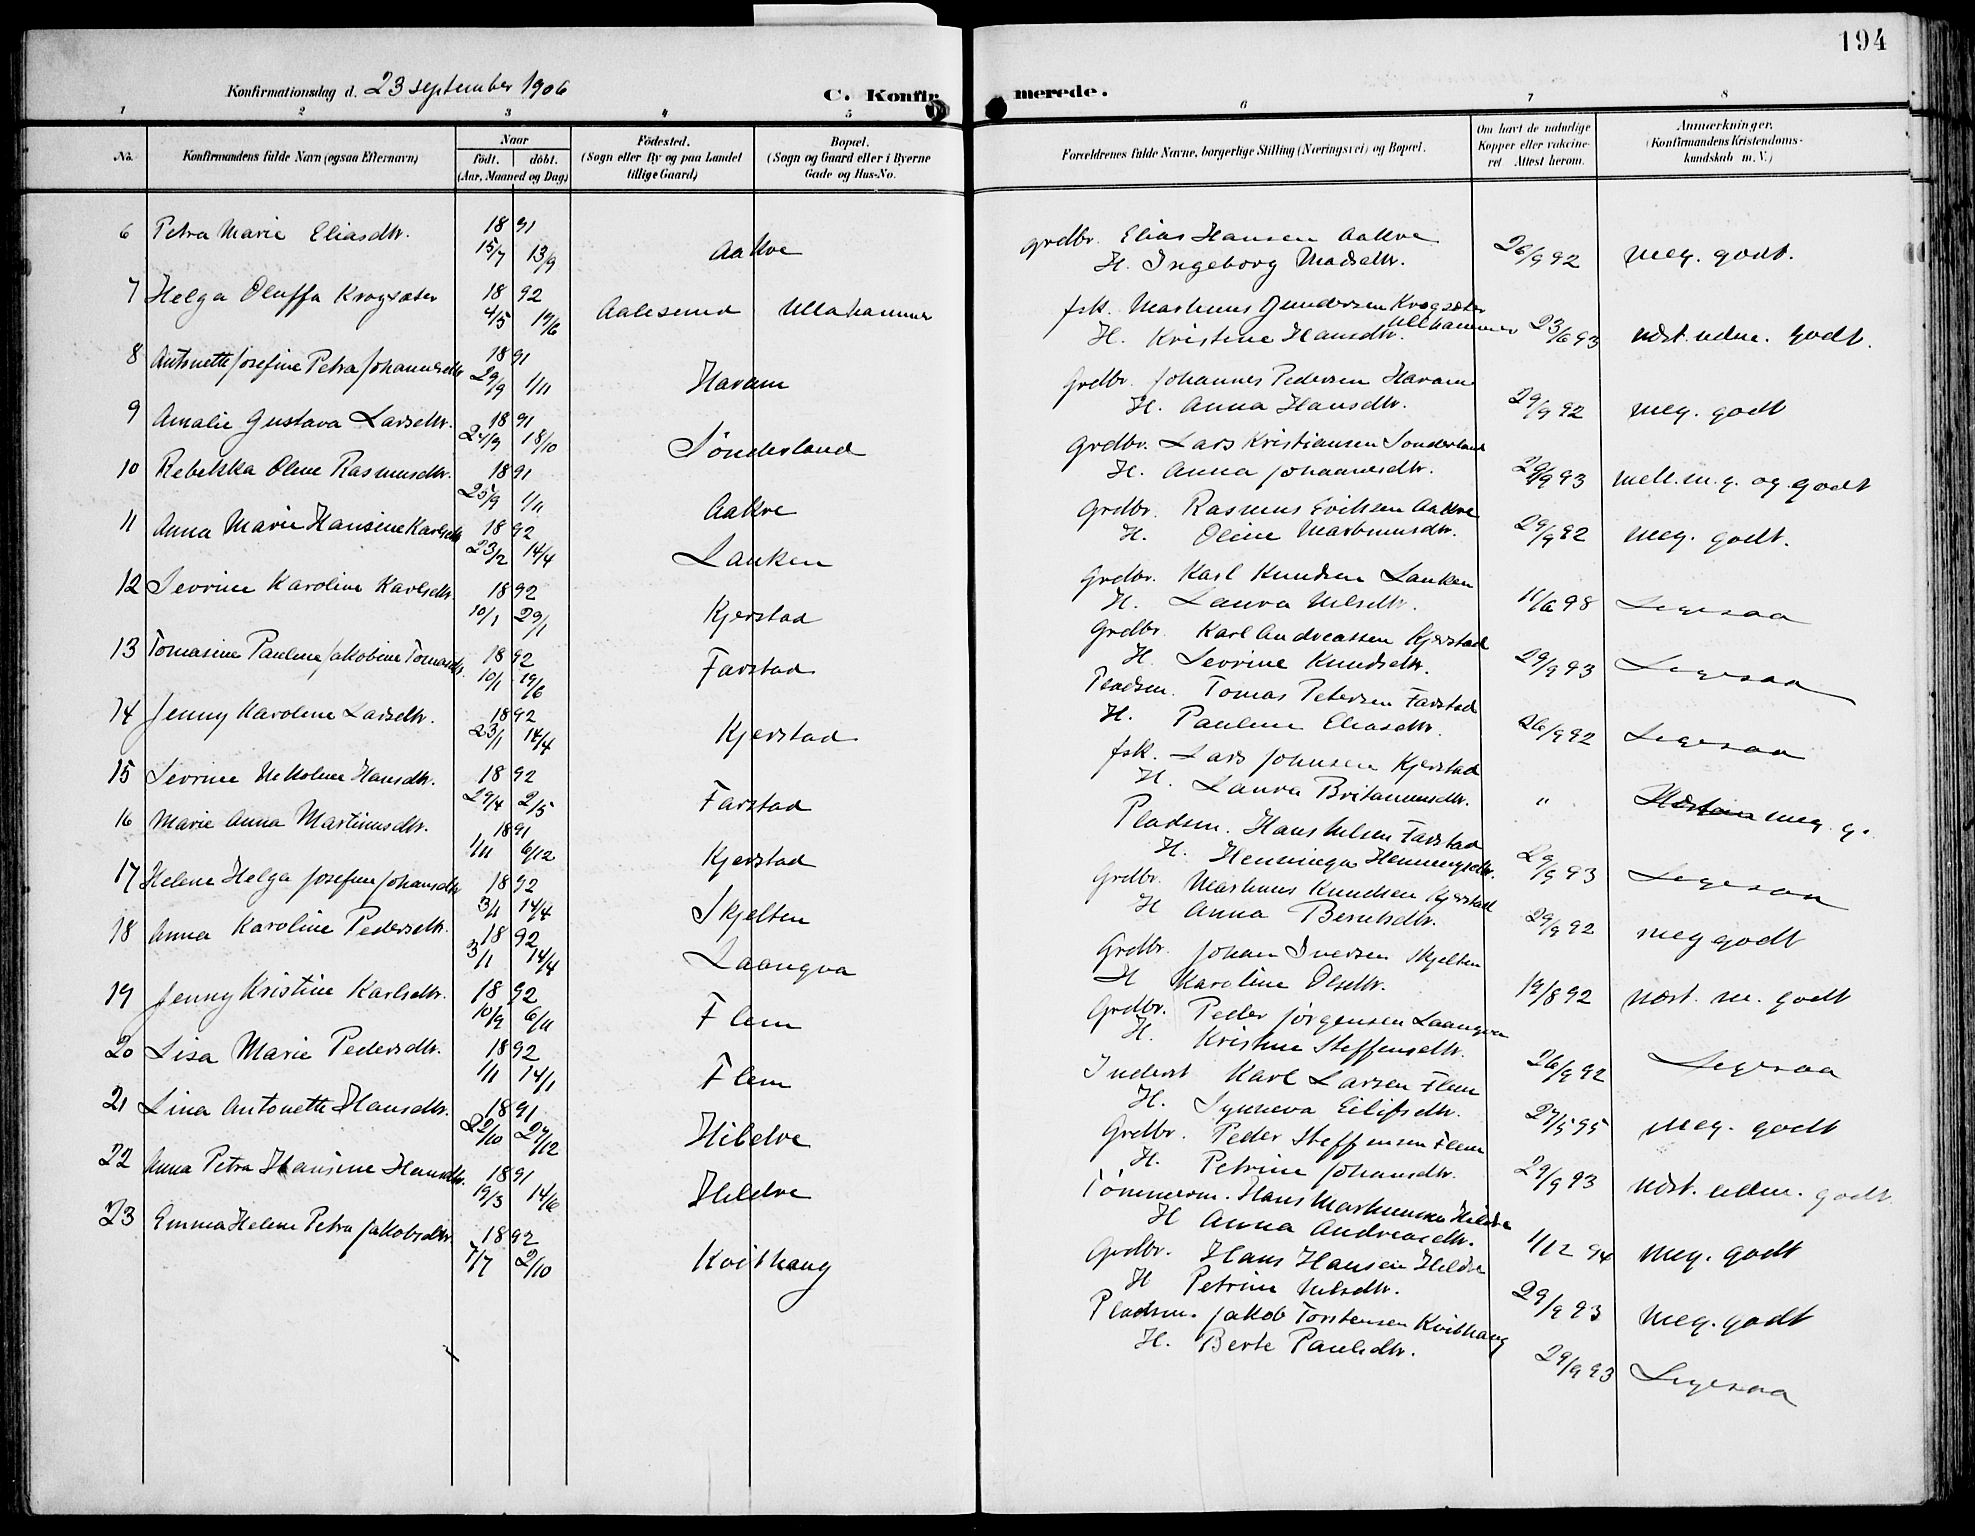 194
Konfirmationsdag d. 23 september 1906
C. Konfir merede.
1 2 3 4 5 6 7 8
No. Konfirmandens fulde Navn (ogsaa Efternavn)
Naar
født. døbt.
(Aar, Maaned og Dag)
Fødested.
(Sogn eller By og paa Landet
tillige Gaard)
Bopæl.
(Sogn og Gaard eller i Byerne
Gade og Hus-No.
Forældrenes fulde Navne, borgerlige Stilling (Næringsvei) og Bopæl.
Om havt de naturlige
Kopper eller vakcine-
ret Attest herom.
Anmærkninger.
(Konfirmandens Kristendoms-
kundskab m. V.)
6 Petra Marie Eliasdtr. 18 91 15/7 13/9 Aakve
grdbr. Elias Hansen Aakve
H. Ingeborg Madsdtr. 26/9 92 meg. godt.
7 Helga Oluffa Krogsæter 18 92 4/5 19/6 Aalesund Ullahammer
fsk. Martinus Gundersen Krogsæter
Ullhammer
H. Kristine Hansdtr. 23/6 93 næst. udm. godt.
8 Antonette Josefine Petra Johannesdtr 18 91 29/9 1/11 Haram
Grdbr. Johannes Pedersen Haram
H. Anna Hansdtr. 29/9 92 meg. godt
9 Amalie Gustava Larsdtr. 18 91 18/10 Sønderland
Grdbr. Lars Kristiansen Sønderland
H. Anna Johannesdtr. 93 mell. m. g. og godt
10 Rebekka Oline Rasmusdtr. 18 91 25/9 1/11 Aakve
Grdbr. Rasmus Eriksen Aakve
H. Oline Martinusdtr. 29/9 92 meg. godt.
11 Anna Marie Hansine Karlsdtr 18 92 23/2 14/4 Lauken
Grdbr. Karl Knudsen Lauken
H. Laura Nilsdtr. 11/6 98 Ligesaa
12 Sevrine Karoline Karlsdtr. 18 92 10/1 29/1 Kjerstad
Grdbr. Karl Andreassen Kjerstad
H. Sevrine Knudsdtr. 29/9 93 Ligesaa
13 Tomasine Pauline Jakobine Tomasdtr. 18 92 10/1 19/6 Farstad
Pladsm. Tomas Petersen Farstad
H. Pauline Eliasdtr. 26/9 92 Ligesaa
14 Jenny Karoline Larsdtr. 18 92 23/1 14/4 Kjerstad
fsk. Lars Johnsen Kjerstad
H. Laura Britanusdtr. " meg. g.
15 Sevrine Nikoline Hansdtr. 18 92 29/4 2/5 Farstad
Pladsm. Hans Nilsen Farstad
H. Henninga Henningsdtr. 29/9 93 Ligesaa
16 Marie Anna Martinusdtr. 18 91 1/11 6/12 Kjerstad
Grdbr. Martinus Knudsen Kjerstad
H Anna Berntsdtr. 29/9 92 meg godt
17 Helene Helga Josefine Johansdtr 18 92 3/1 14/4 Skjelten
Grdbr. Johan Iversen Skjelten
H Karoline Olsdtr. 19/8 92 næst. m. godt
18 Anna Karoline Pedersdtr. 18 92 3/1 14/4 Laangva
Grdbr. Peder Jørgensen Laangva
H. Kristine Steffensdtr. 26/9 92 Ligesaa
19 Jenny Kristine Karlsdtr. 18 92 10/9 6/11 Flem
Inderst Karl Larsen Flem
H. Synneva Eilifsdtr. 27/5 95 meg. godt
20 Lisa Marie Pedersdtr. 18 92 1/1 14/1 Flem
Grdbr. Peder Steffensen Flem
H. Petrine Johansdtr. 29/9 93 næst. udm. godt
21 Lina Antonette Hansdtr. 18 91 22/10 27/12 Hildre
Tømmerm. Hans Martinusen Hildre
H Anna Andreasdtr. 1/12 94 meg. godt
22 Anna Petra Hansine Hansdtr. 18 91 19/3 14/6 Hildre
Grdbr. Hans Hansen Hildre
H Petrine Nilsdtr. 29/9 93 meg. godt
23 Emma Helene Petra Jakobsdtr. 18 92 7/7 2/10 Kvithaug
Pladsm. Jakob Torstensen Kvithaug
H. Berte Paulsdtr. 29/9 93 Ligesaa